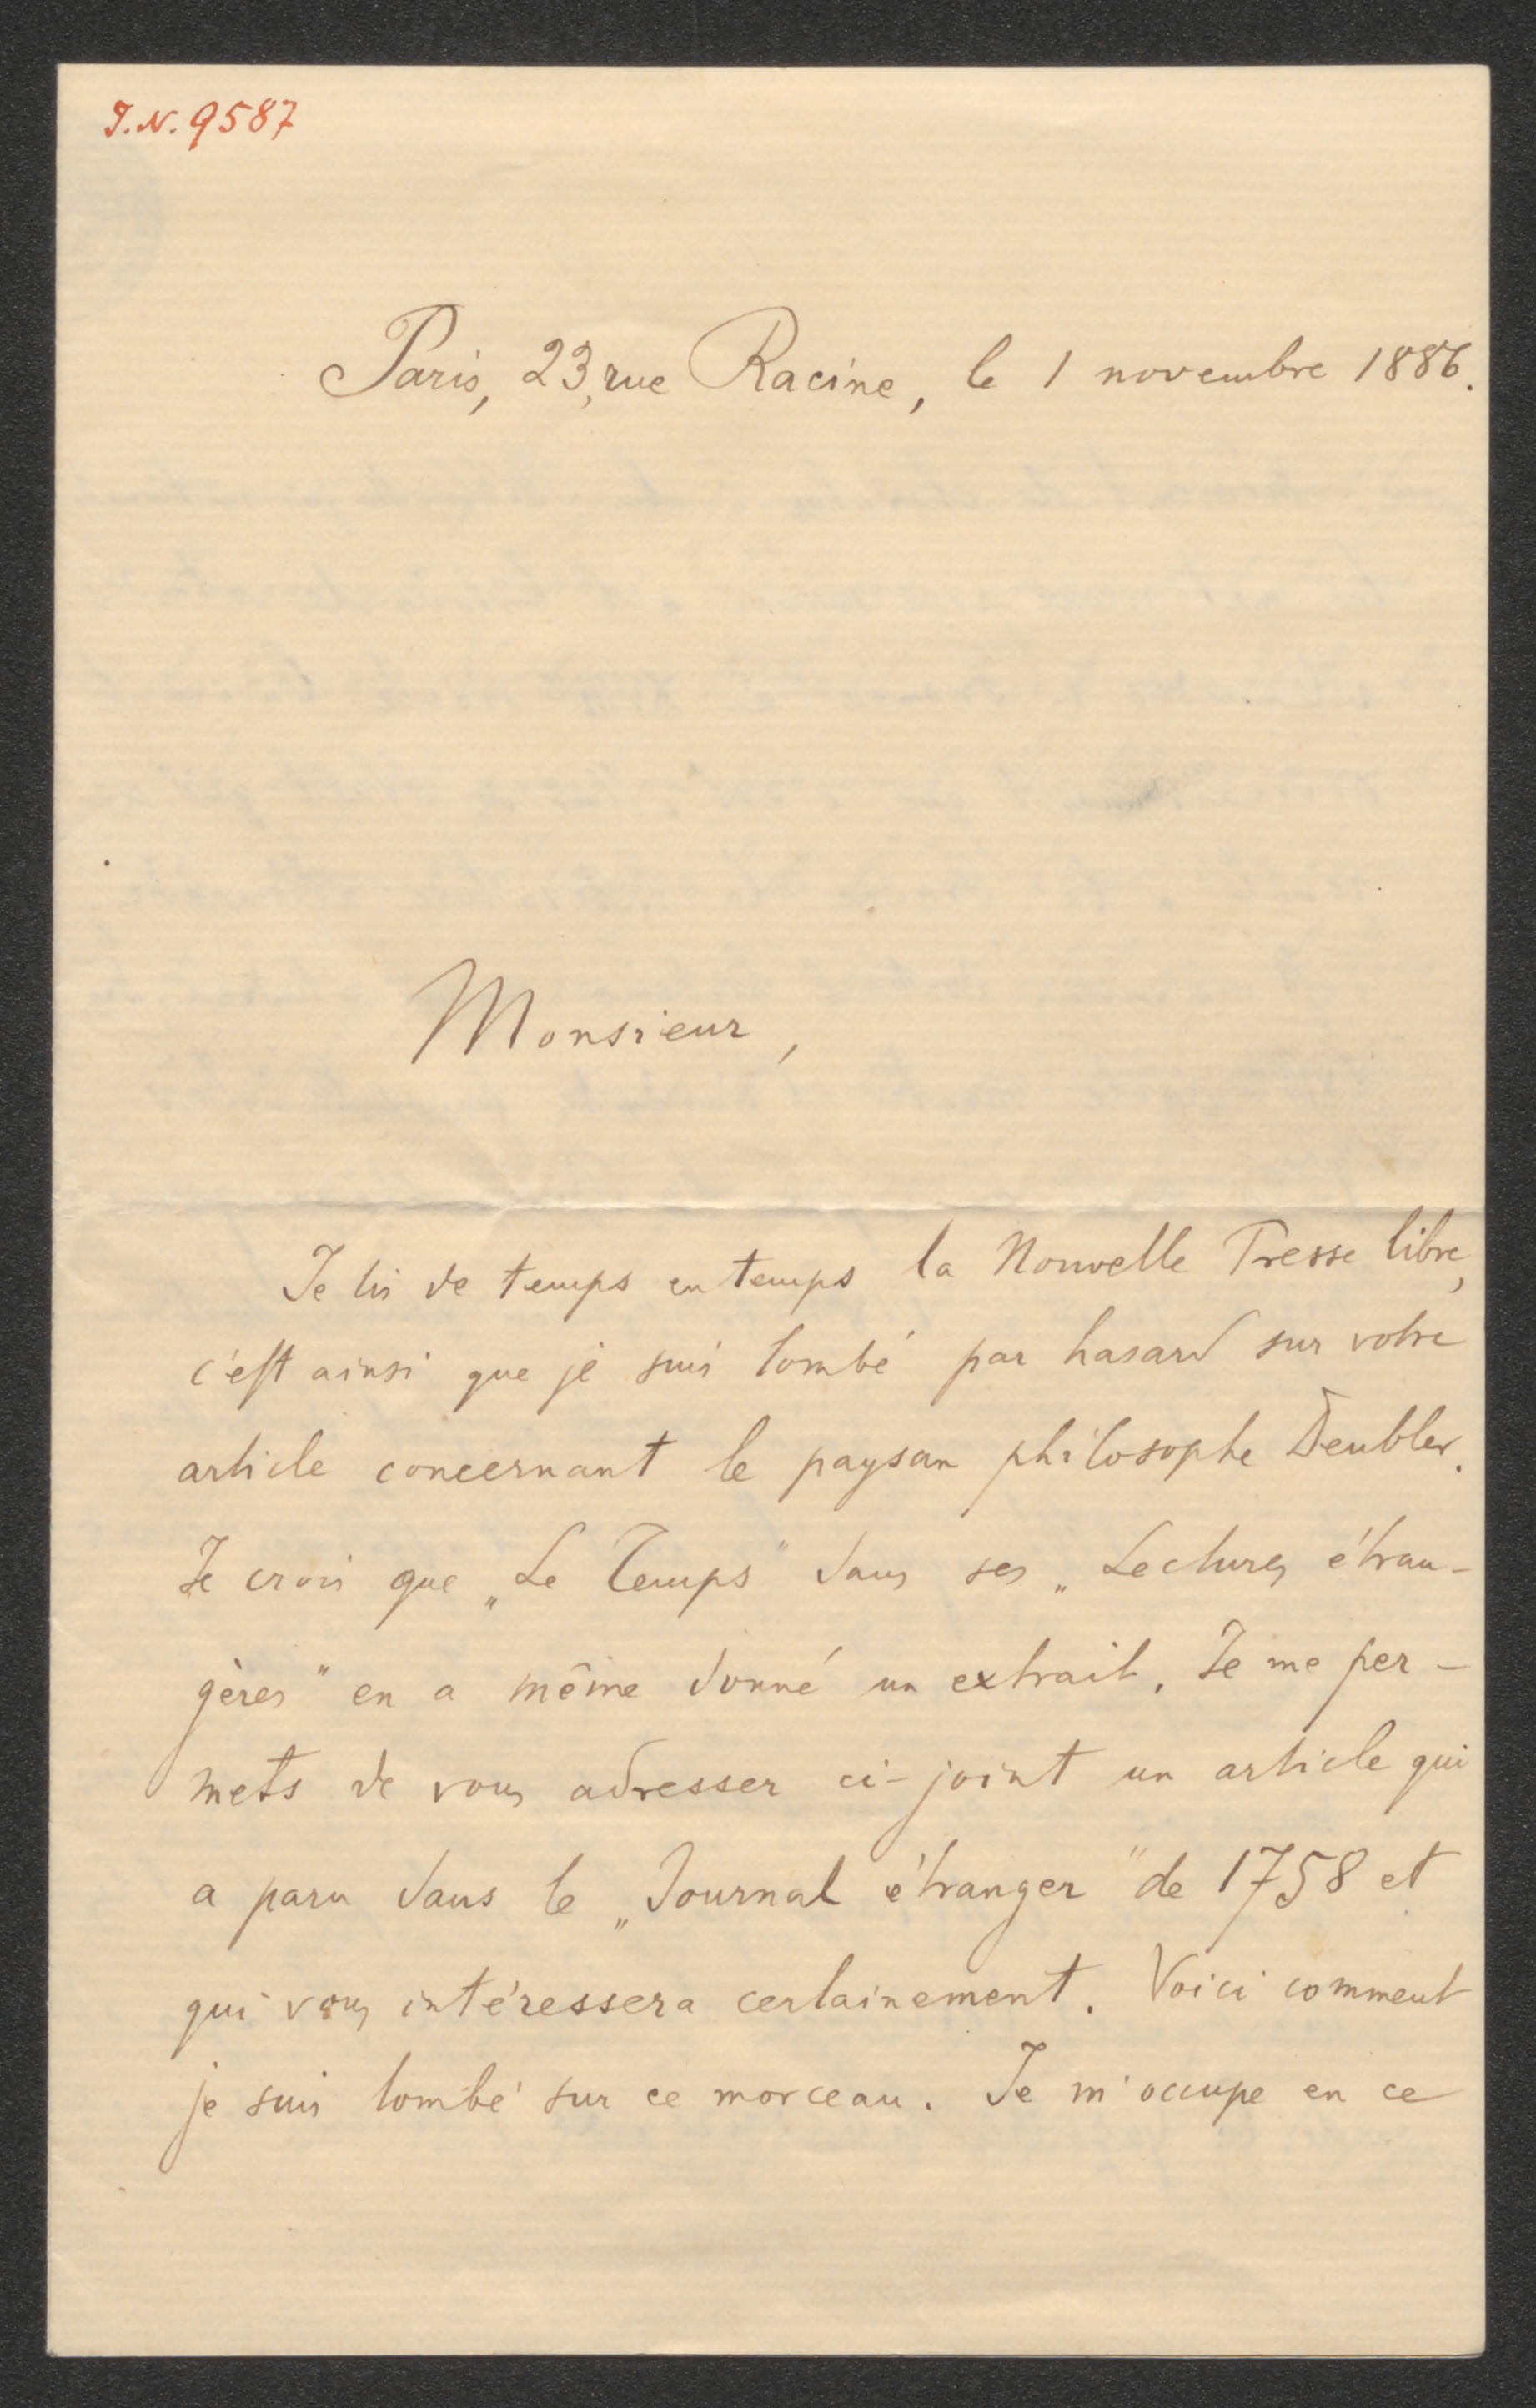 J.N. 9587
Paris, 23, rue Racine, le 1 novembre 1886.
Monsieur,
Je lis de temps en temps la Nouvelle Presse libre,
c'est ainsi que je suis tombé par hasard sur votre
article concernant le paysan philosophe Deubler.
Je crois que „Le Temps" dans ses „Lectures étran-
gères" en a même donné un extrait. Je me per-
mets de vous adresser ci-joint un article qui
a paru dans le „Journal étranger" de 1758 et
qui vous intéressera certainement. Voici comment
je suis tombé sur ce morceau. Je m'occupe en ce